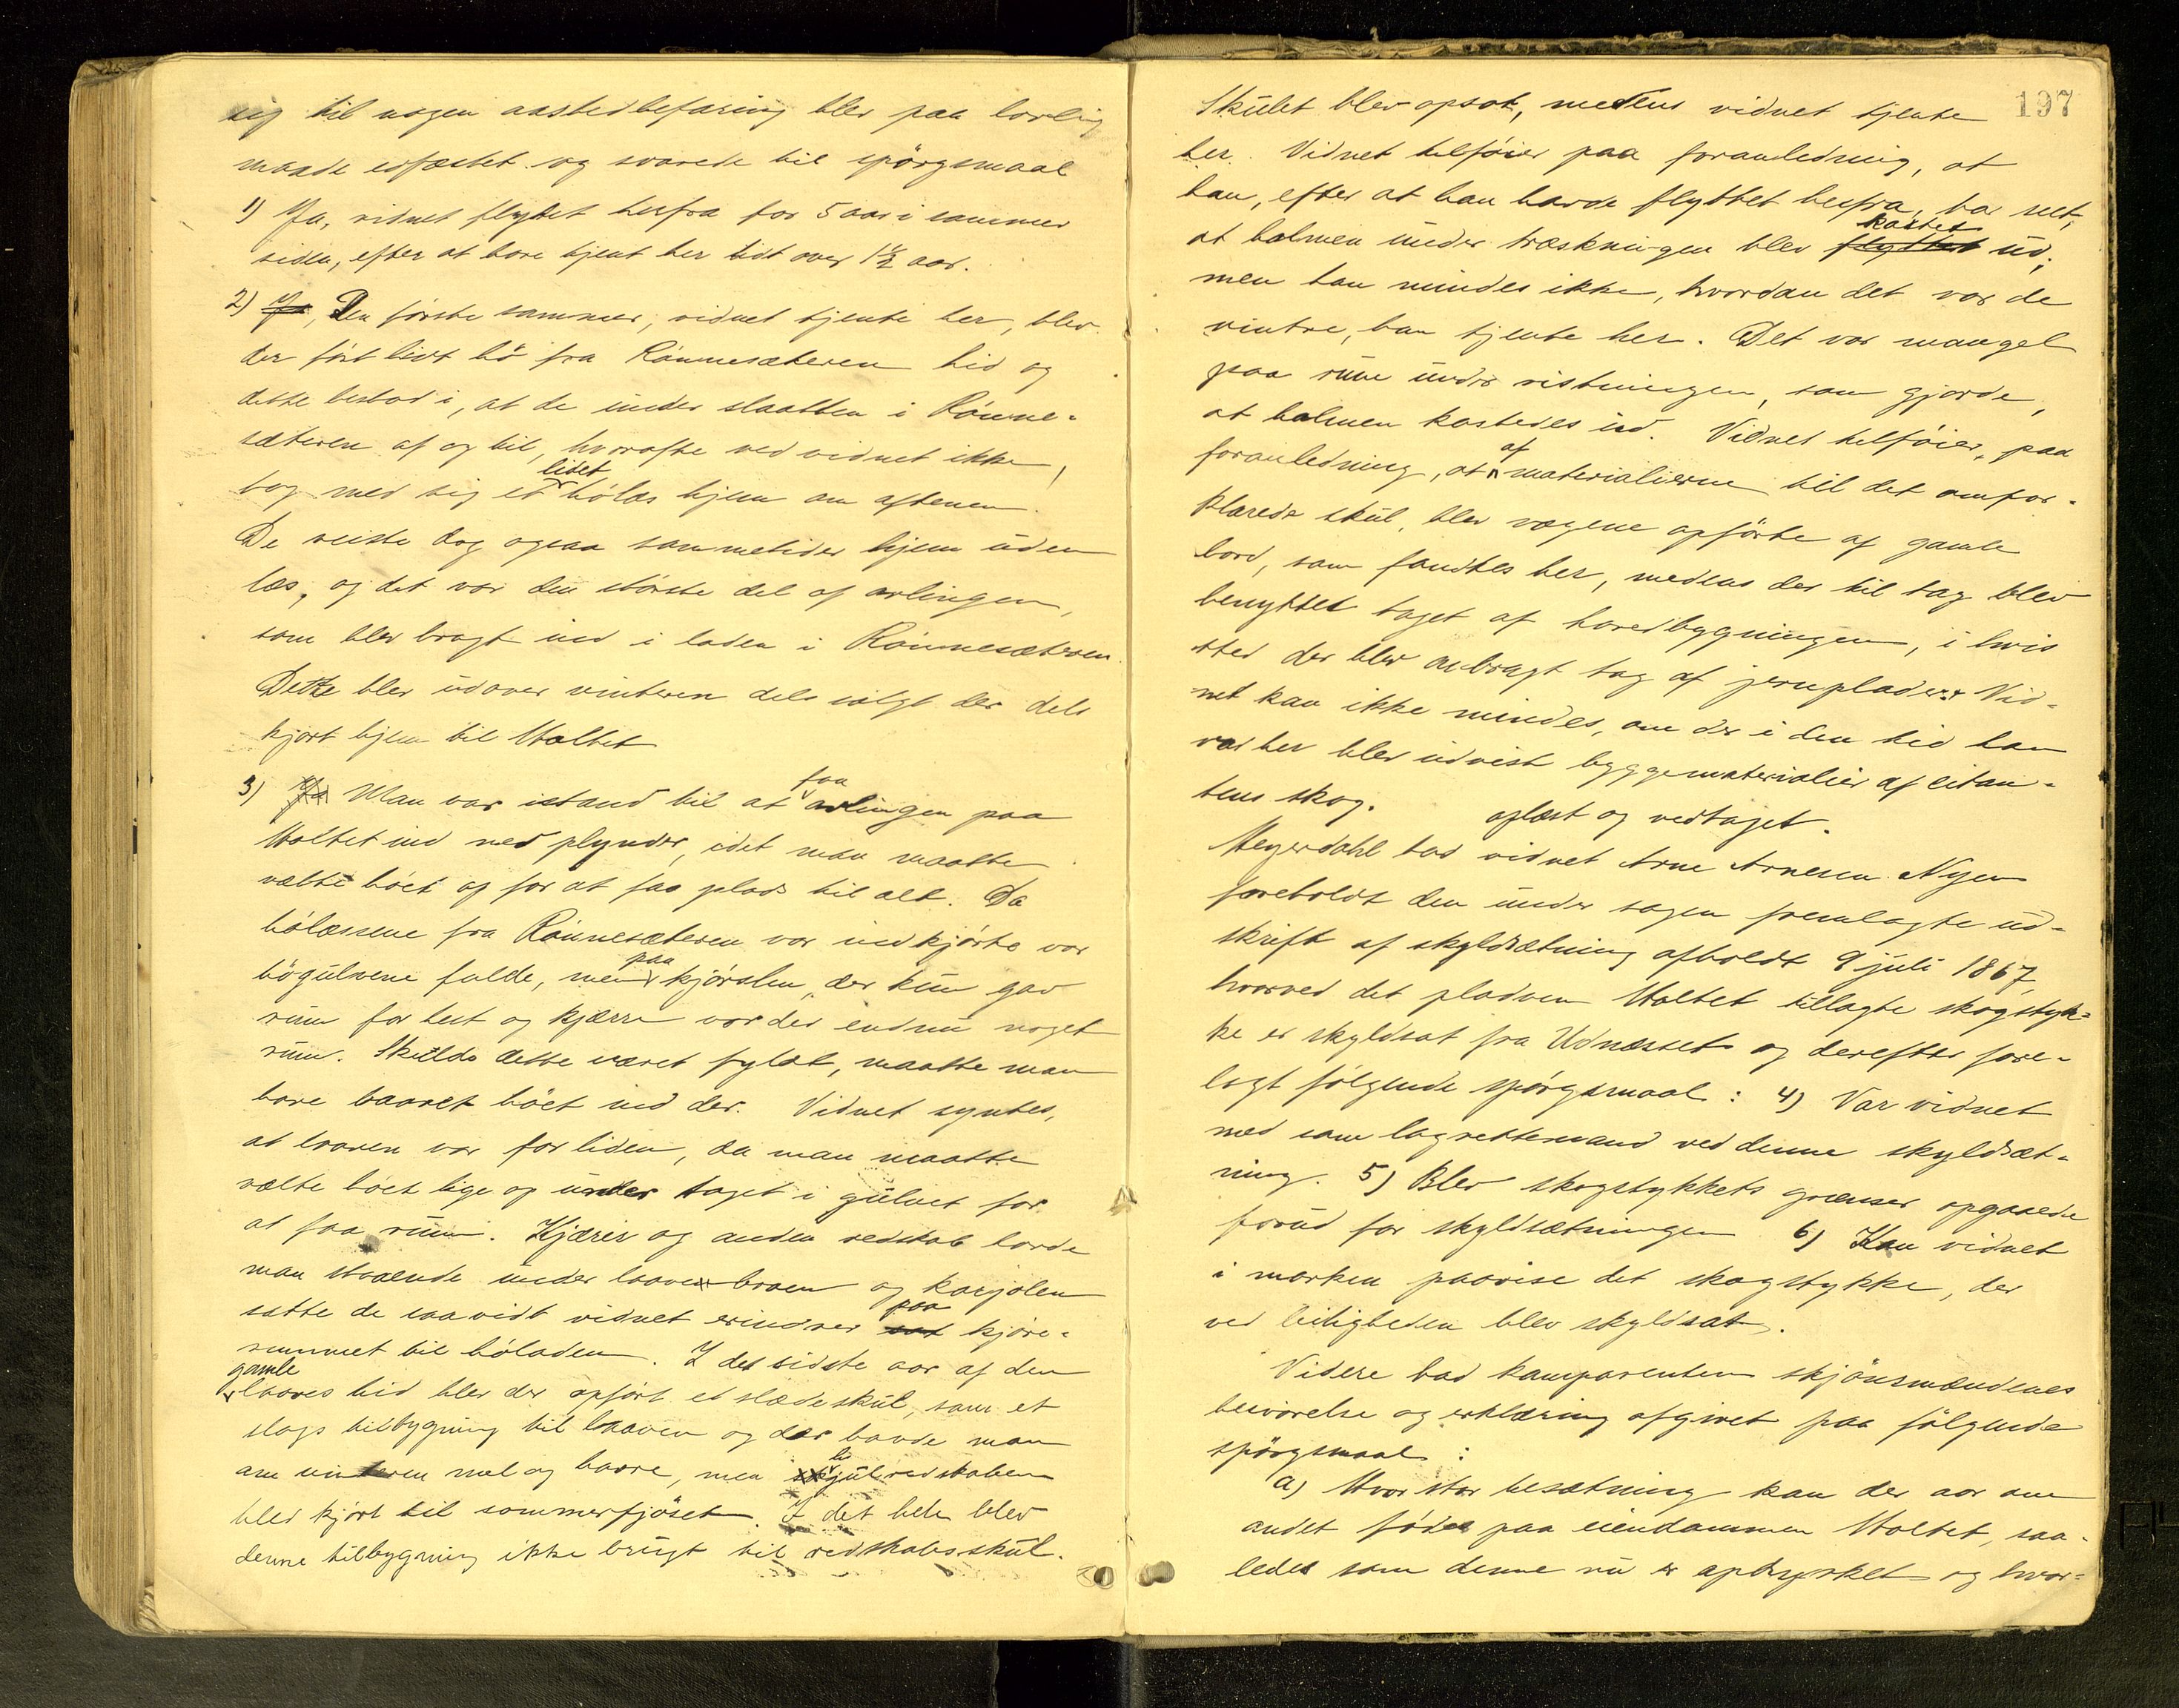 sig til nogen aastedbefaring blev paa lovlig
maade edfæstet og svarede til spörgsmaal
1) Ja, vidnet flyttet herfra for 5 aar i sommer
siden, efter at have tjent her lidt over 1 1/2 aar.
2) Ja, Den förste sommer, vidnet tjente her, blev
der fört lidt hö fra Rönnesæteren hid og
dette bestod i, at de under slaatten i Rönne-
sæteren af og til, hvorofte ved vidnet ikke,
tog med sig et lidet hölæs hjem om aftenen.
De reiste dog ogsaa sommetider hjem uden
læs, og det var den störste del af avlingen,
som blev bragt ind i laden i Rönnesæteren.
Dette blev udover vinteren dels solgt der dels
kjört hjem til Holtet
3) Ja Man var istand til at faa avlingen paa
Holtet ind ned plynder, idet man maatte
vælte höiet op for at faa plads til alt. Da
hölæssene fra Rönnesæteren var indkjörte var
högulvene fulde, men paa kjörslen, der kun gav
rum for hest og kjærre var der endnu noget
rum. Skulde dette været fyldt, maatte man
have baaret höiet ind der. Vidnet syntes,
at laaven var for liden, da man maatte
vælte höiet lige op under taget i gulvet for
at faa rum. Kjærrer og anden redskab havde
man staaende under laavebroen og karjolen
satte de saavidt vidnet erindrer sat paa kjöre-
rummet til höladen. I det sidste aar af den
gamle laaves tid blev der opfört et slædeskul, som et
slags tilbygning til laaven og der havde man
om vinteren mel og havre, men hjulredskaben
blev kjört til sommerfjöset. I det hele blev
denne tilbygning ikke brugt til redskabsskul.
197
Skulet blev opsat, medens vidnet tjente
her. Vidnet tilföier paa foranledning, at
han, efter at han havde flyttet herfra, har seet,
at halmen under træskningen blev flyttet kastet ud,
men han mindes ikke, hvordan det var de
vintre, han tjente her. Det var mangel
paa rum under ristningen, som gjorde,
at halmen kastedes ud. Vidnet tilföier, paa
foranledning, at af materialierne til det omfor-
klarede skul, blev vægene opförte af gamle
bord, som fandtes her, medens der til tag blev
benyttet taget af hovedbygningen, i hvis
sted der blev anbragt tag af jernplader. Vid-
net kan ikke mindes, om der i den tid han
var her blev udvist byggematerialier af citan-
tens skog. oplæst og vedtaget.
Meyerdahl bad vidnet Arne Arnesen Nyen
foreholdt den under sagen fremlagte ud-
skrift af skyldsætning afholdt 9 juli 1867,
hvorved det pladsen Holtet tillagte skogstyk-
ke er skyldsat fra Udnæsset og derefter fore-
lagt fölgende spörgsmaal: 4) Var vidnet
med som lagrettemand ved denne skyldsæt-
ning. 5) Blev skogstykkets grænser opgaaede
forud for skyldsætningen 6) Kan vidnet
i marken paavise det skogstykke, der
ved leiligheden blev skyldsat.
Videre bad komparenten skjönsmændenes
besvarelse og erklæring afgivet paa fölgende
spörgsmaal:
a) Hvor stor besætning kan der aar om
andet födes paa eiendommen Holtet, saa-
ledes som denne nu er opdyrket og hvor-